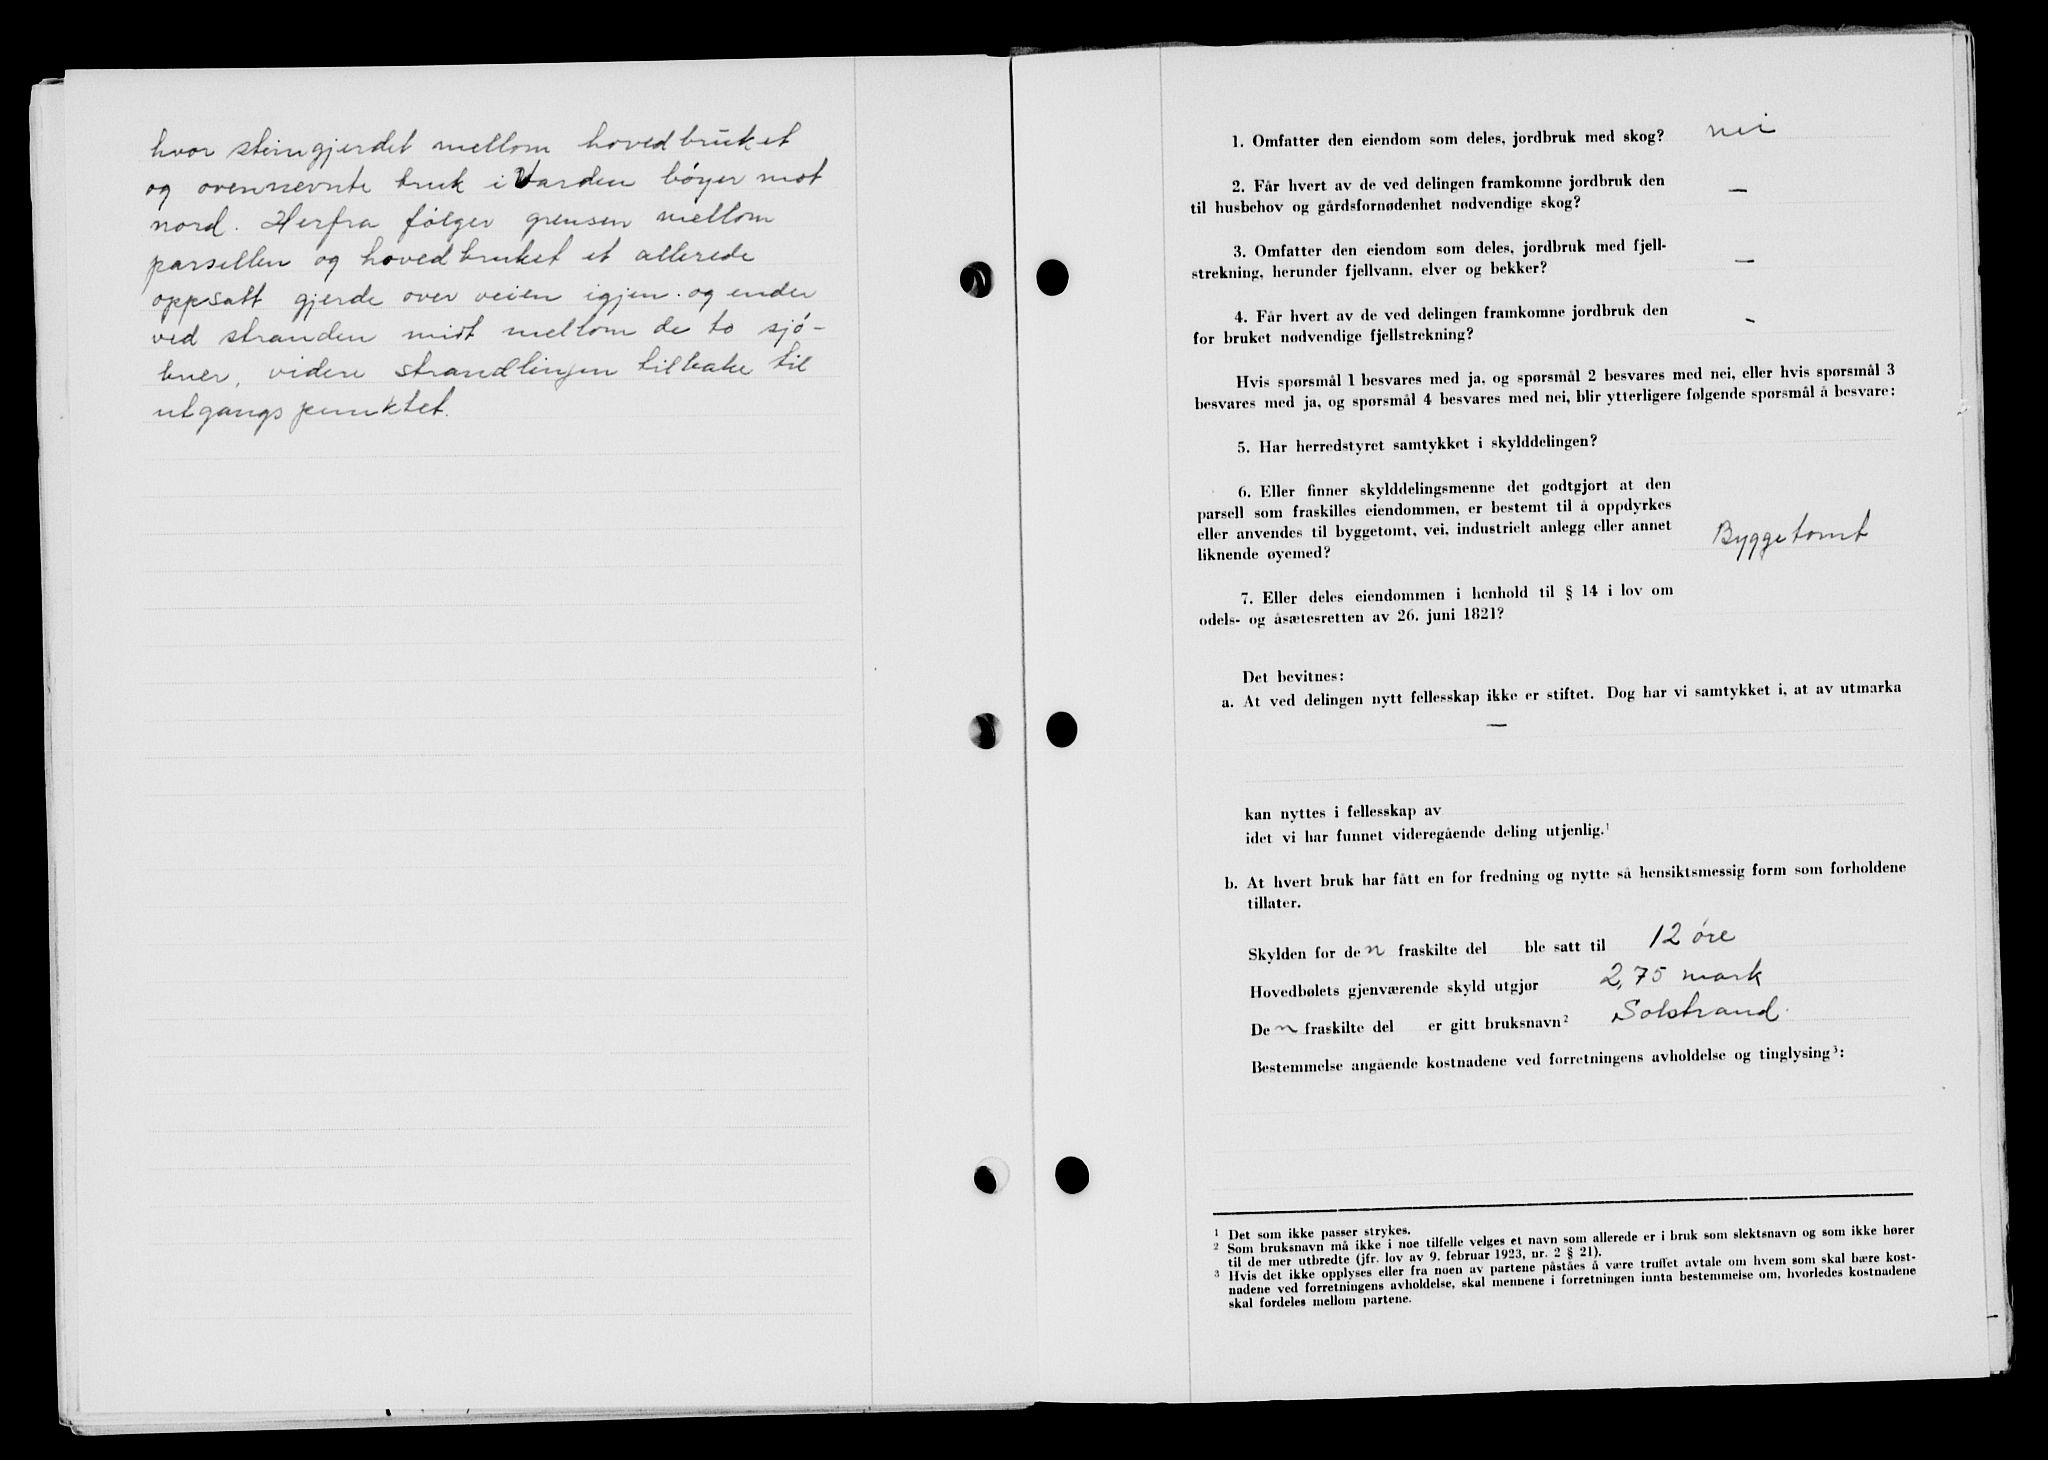 hvor steingjerdet mellom hovedbruket
og ovennevnte bruk i Varden bøyer mot
nord. Herfra følger grensen mellom
parsellen og hovedbruket et allerede
oppsatt gjerde over veien igjen og ender
ved stranden midt mellom de to sjø-
buer, videre strandlinjen tilbake til
utgangspunktet.
1. Omfatter den eiendom som deles, jordbruk med skog? nei
2. Får hvert av de ved delingen framkomne jordbruk den
til husbehov og gårdsfornødenhet nødvendige skog? —
3. Omfatter den eiendom som deles, jordbruk med fjell-
strekning, herunder fjellvann, elver og bekker? —
4. Får hvert av de ved delingen framkomne jordbruk den
for bruket nødvendige fjellstrekning? -
Hvis spørsmål 1 besvares med ja, og spørsmål 2 besvares med nei, eller hvis spørsmål 3
besvares med ja, og spørsmål 4 besvares med nei, blir ytterligere følgende spørsmål å besvare:
5. Har herredstyret samtykket i skylddelingen?
6. Eller finner skylddelingsmenne det godtgjort at den
parsell som fraskilles eiendommen, er bestemt til å oppdyrkes
eller anvendes til byggetomt, vei, industrielt anlegg eller annet
liknende øyemed? Byggetomt
7. Eller deles eiendommen i henhold til § 14 i lov om
odels- og åsætesretten av 26. juni 1821?
Det bevitnes:
a. At ved delingen nytt fellesskap ikke er stiftet. Dog har vi samtykket i, at av utmarka
—
kan nyttes i fellesskap av
idet vi har funnet videregående deling utjenlig.¹
b. At hvert bruk har fått en for fredning og nytte så hensiktsmessig form som forholdene
tillater.
Skylden for den fraskilte del ble satt til 12 øre
Hovedbølets gjenværende skyld utgjør 2,75 mark
Den fraskilte del er gitt bruksnavn² Solstrand.
Bestemmelse angående kostnadene ved forretningens avholdelse og tinglysing³:
¹ Det som ikke passer strykes.
² Som bruksnavn må ikke i noe tilfelle velges et navn som allerede er i bruk som slektsnavn og som ikke hører
til de mer utbredte (jfr. lov av 9. februar 1923, nr. 2 § 21).
³ Hvis det ikke opplyses eller fra noen av partene påståes å være truffet avtale om hvem som skal bære kost-
nadene ved forretningens avholdelse, skal mennene i forretningen innta bestemmelse om, hvorledes kostnadene
skal fordeles mellom partene.